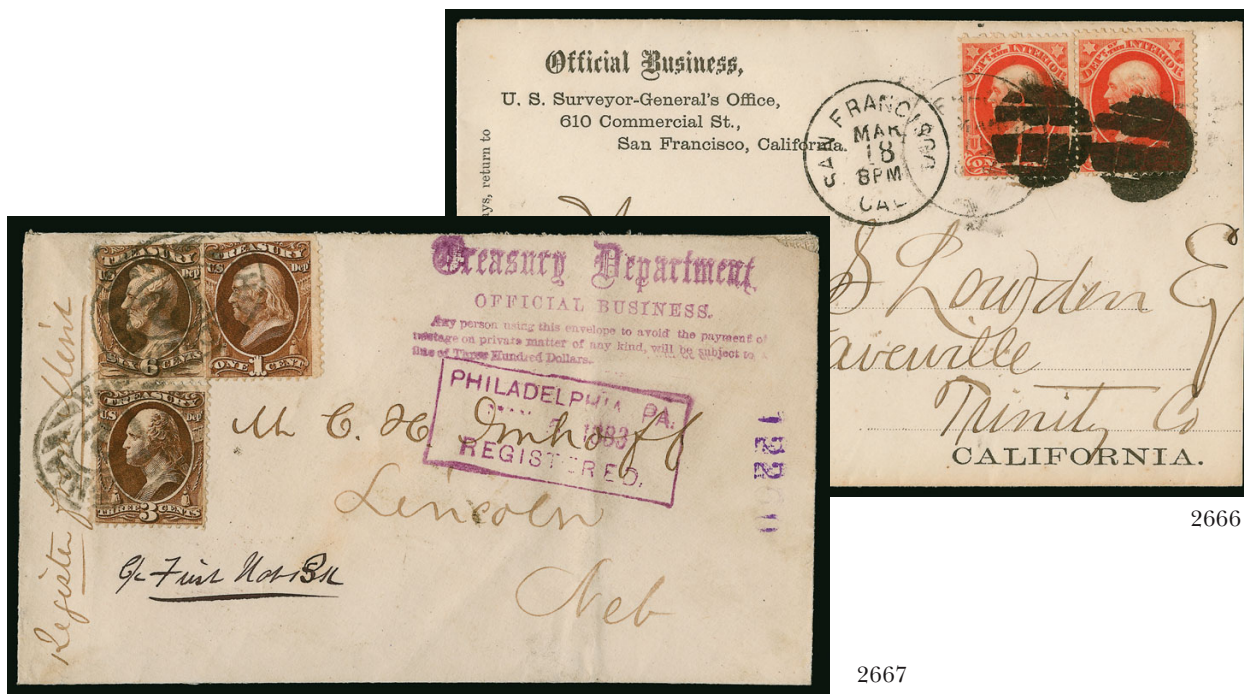 Official Business,
U. S. Surveyor-General's Office,
610 Commercial St.,
San Francisco, California.
ys, return to
SAN FRANCISCO
MAR
18
8PM
CAL
DEP'T OF THE INTERIOR
DEP'T OF THE INTERIOR
S Lowden
Trinity Co
CALIFORNIA.
2666
TREASURY
U.S. Dep
SIX 6 CENTS
TREASURY
U.S. Dep
ONE 1 CENT
TREASURY
U.S. Dep
THREE 3 CENTS
Treasury Department
OFFICIAL BUSINESS.
Any person using this envelope to avoid the payment of
postage on private matter of any kind, will be subject to a
fine of Three Hundred Dollars.
PHILADELPHIA PA.
1883
REGISTERED.
M C. H. Imhoff
Lincoln
Neb
c/o First Nat Bk
Register
2667